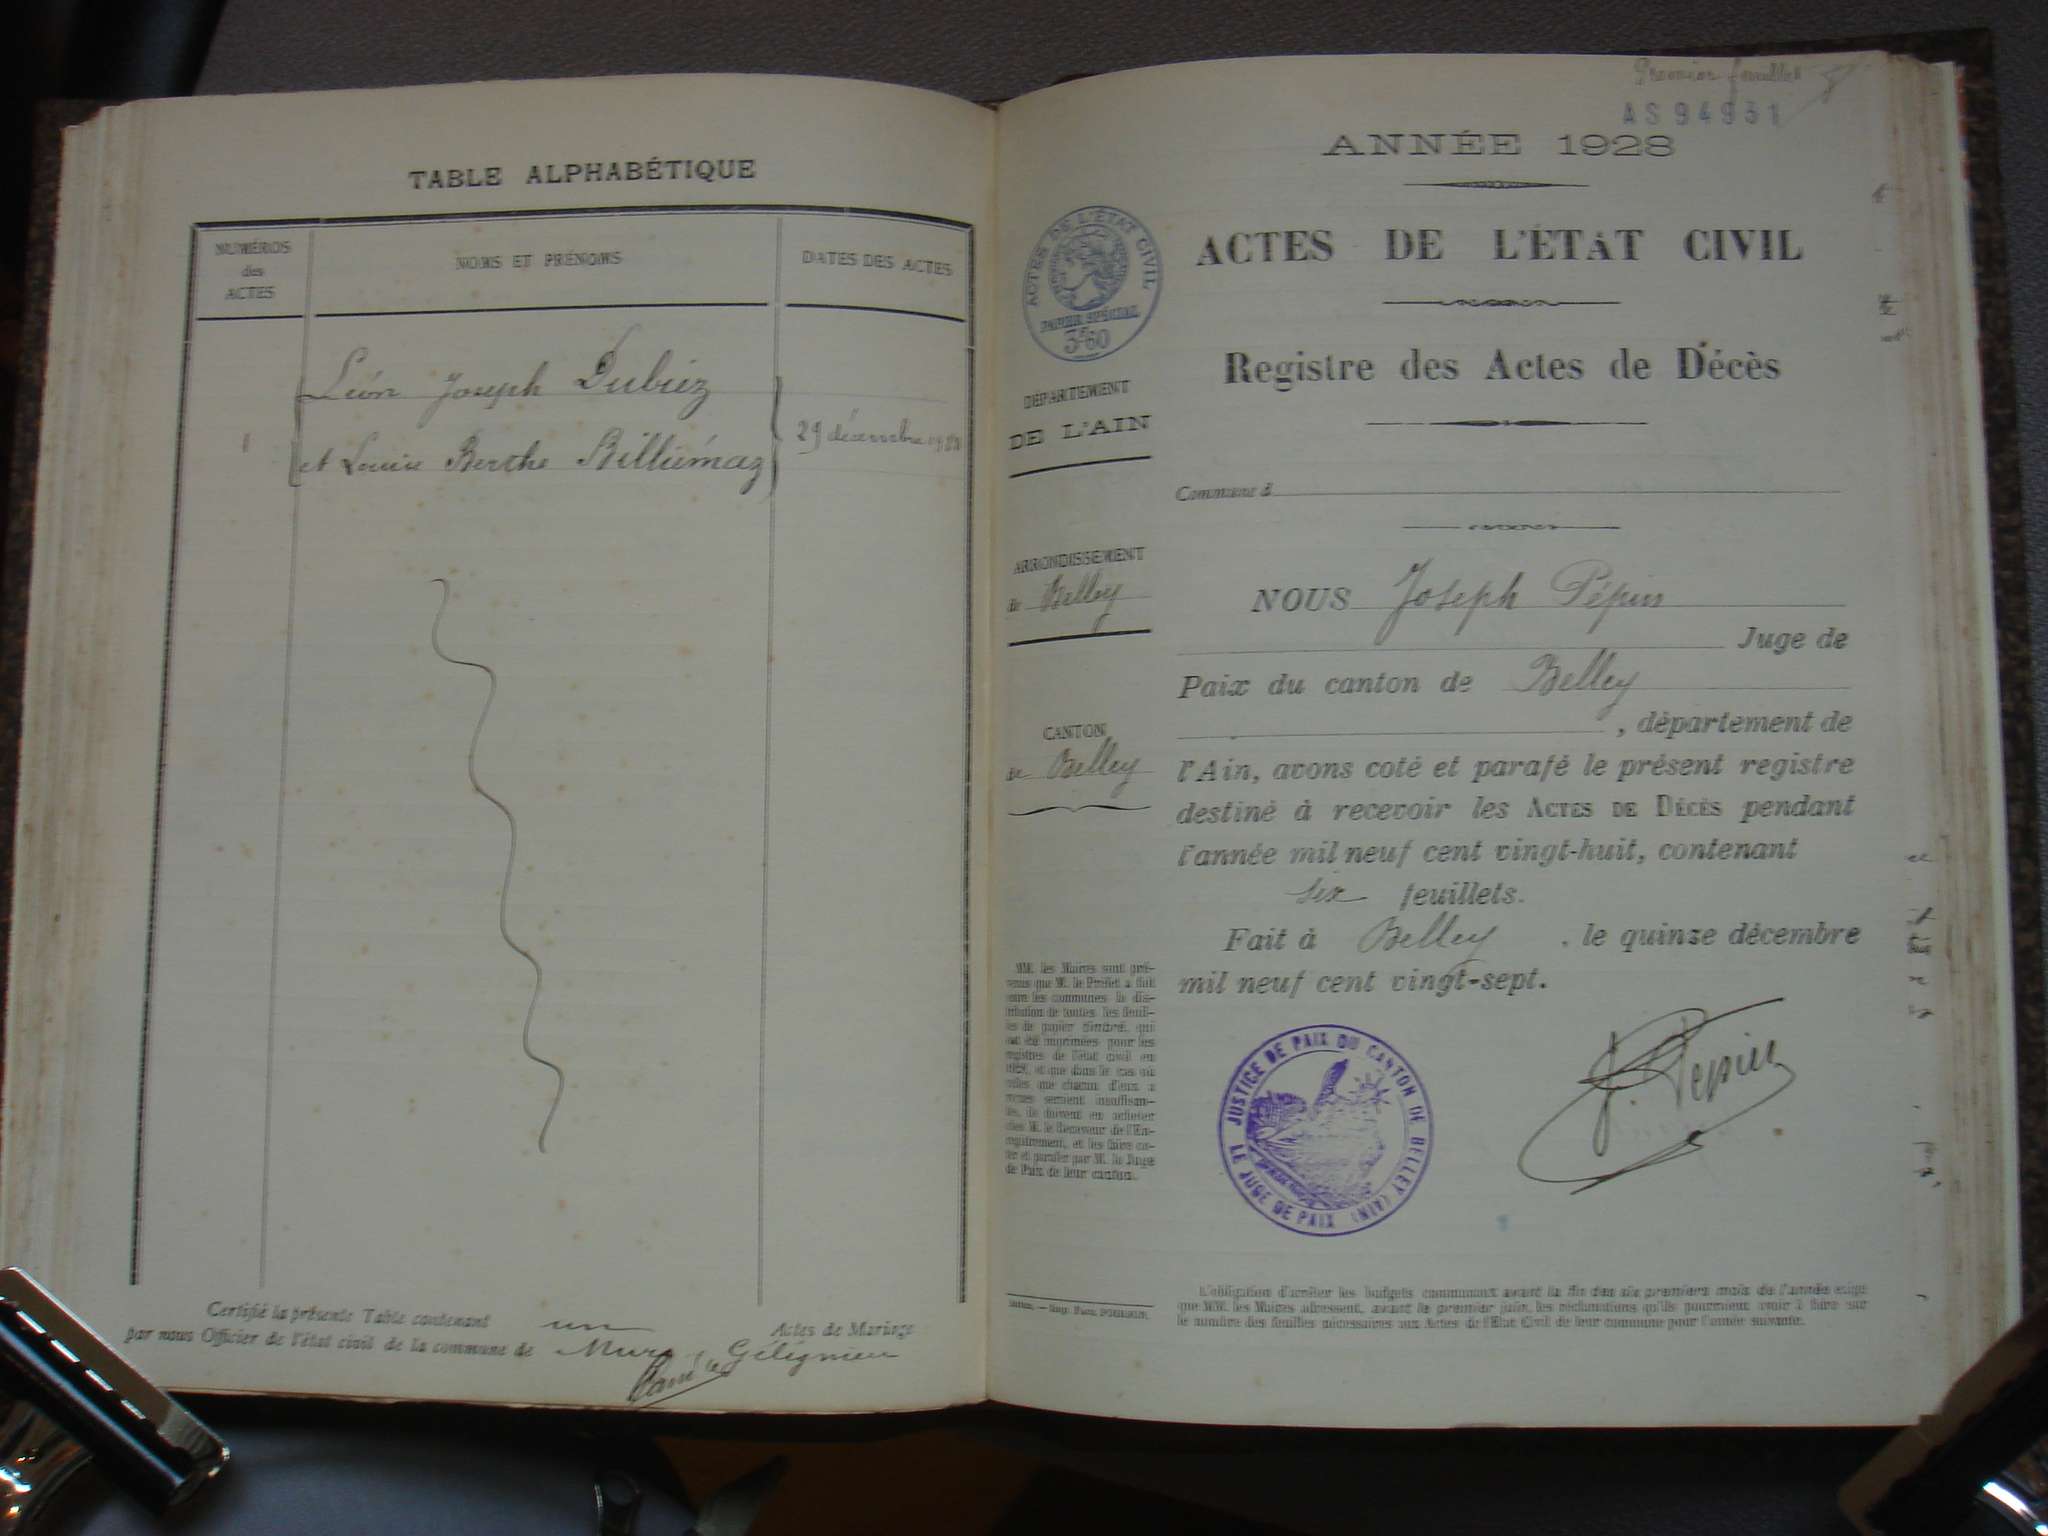 TABLE ALPHABÉTIQUE
NUMÉROS
des
ACTES
NOMS ET PRÉNOMS
DATES DES ACTES
Léon Joseph Dubiez
1
et Louise Berthe Billiémaz
29 décembre
Certifié la présente Table contenant un Actes de Mariage
par nous Officier de l'état civil de la commune de Murs Gélignieu
Premier feuillet
AS 94931
ANNÉE 1928
ACTES DE L'ÉTAT CIVIL
Registre des Actes de Décès
ACTES DE L'ÉTAT CIVIL
PAPIER SPÉCIAL
3f60
DÉPARTEMENT
DE L'AIN
ARRONDISSEMENT
de Belley
CANTON
de Belley
Commune d
NOUS Joseph Pépin
Juge de
Paix du canton de Belley
, département de
l'Ain, avons coté et parafé le présent registre
destiné à recevoir les ACTES DE DÉCÈS pendant
l'année mil neuf cent vingt-huit, contenant
six feuillets.
Fait à Belley, le quinze décembre
mil neuf cent vingt-sept.
MM. les Maires sont pré-
venus que M. le Préfet a fait
entre les communes la dis-
tribution de toutes les feuil-
les de papier timbré, qui
ont été imprimées pour les
registres de l'état civil en
1928, et que dans le cas où
celles que chacun d'eux a
reçues seraient insuffisan-
tes, ils doivent en acheter
chez M. le Receveur de l'En-
registrement, et les faire co-
ter et parafer par M. le Juge
de Paix de leur canton.
JUSTICE DE PAIX DU CANTON DE BELLEY (AIN)
LE JUGE DE PAIX
J. Pépin
L'obligation d'arrêter les budgets communaux avant la fin des six premiers mois de l'année exige
que MM. les Maires adressent, avant le premier juin, les réclamations qu'ils pourraient avoir à faire sur
le nombre des feuilles nécessaires aux Actes de l'Etat Civil de leur commune pour l'année suivante.